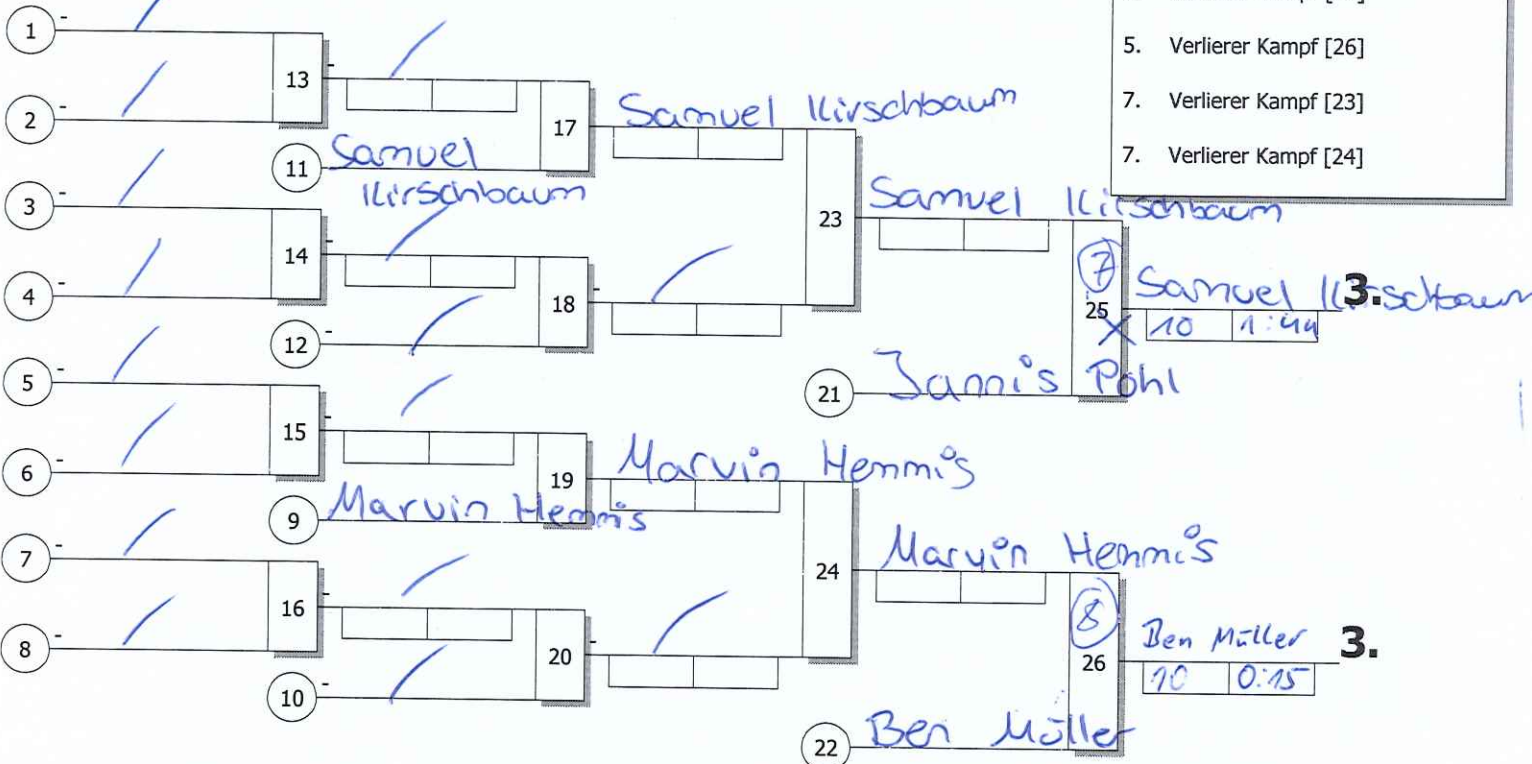 5. Verlierer Kampf [26]
7. Verlierer Kampf [23]
7. Verlierer Kampf [24]
1 -
13 -
2 -
17
Samuel Kirschbaum
11 Samuel
Kirschbaum
3 -
23
Samuel Kirschbaum
14 -
4 -
18 -
12 -
7
25
Samuel Kirschbaum 3.
X 10 1:44
21 Jannis Pohl
5 -
15 -
6 -
19
Marvin Hemmis
9 Marvin Hemmis
7 -
24
Marvin Hemmis
16 -
8 -
20 -
10 -
8
26
Ben Müller 3.
10 0:15
22 Ben Müller